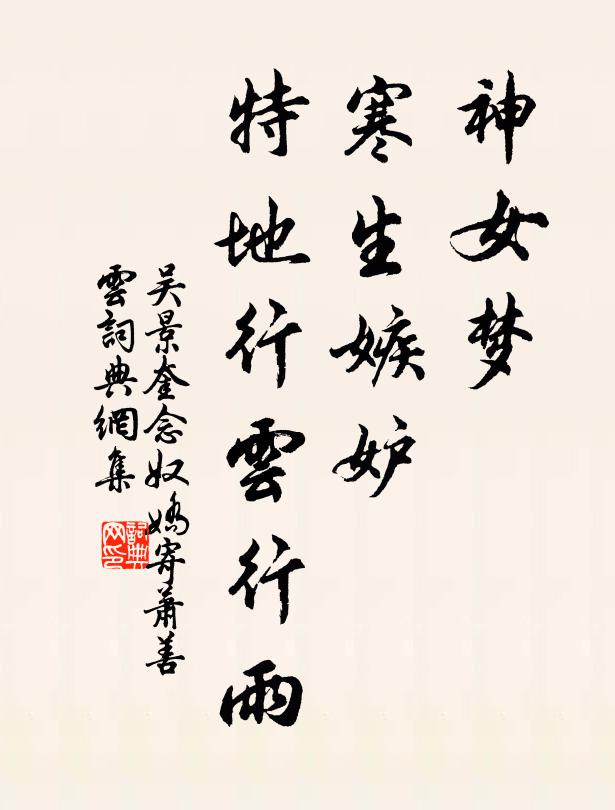 神女梦
寒生嫉妒
特地行雲行雨
吴景奎念奴嬌寄蕭善
雲詞典網集
詞典網印